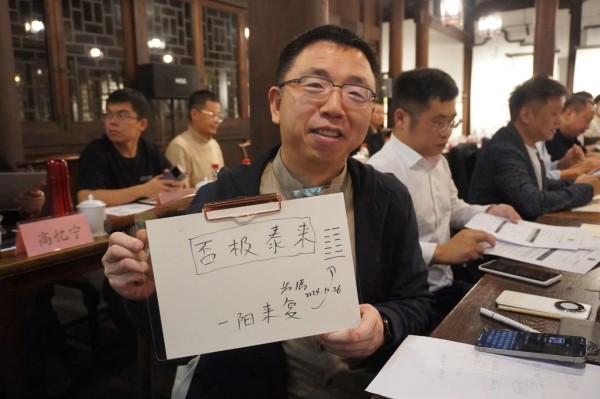 高忆宁
否极泰来
2024.10.26
一阳来复